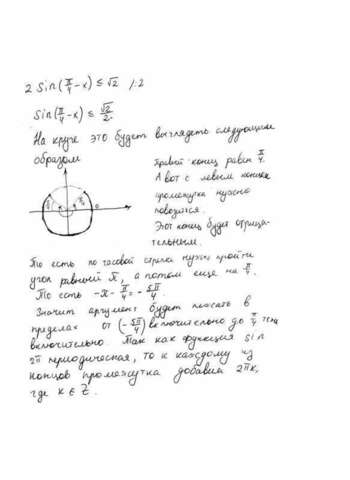 2 sin(π/4 - x) ≤ √2 /:2
sin(π/4 - x) ≤ √2/2
На круге это будет выглядеть следующим
образом
Правый конец равен π/4.
А вот с левым концом
промежутка нужно
повозится.
Этот конец будет отрица-
тельным.
То есть по часовой стрелке нужно пройти
угол равный π, а потом еще на π/4.
То есть -π - π/4 = - 5π/4
Значит аргумент будет лежать в
пределах от (- 5π/4) включительно до π/4
включительно. Так как функция sin
2π периодическая, то к каждому из
концов промежутка добавим 2πk,
где k ∈ Z.